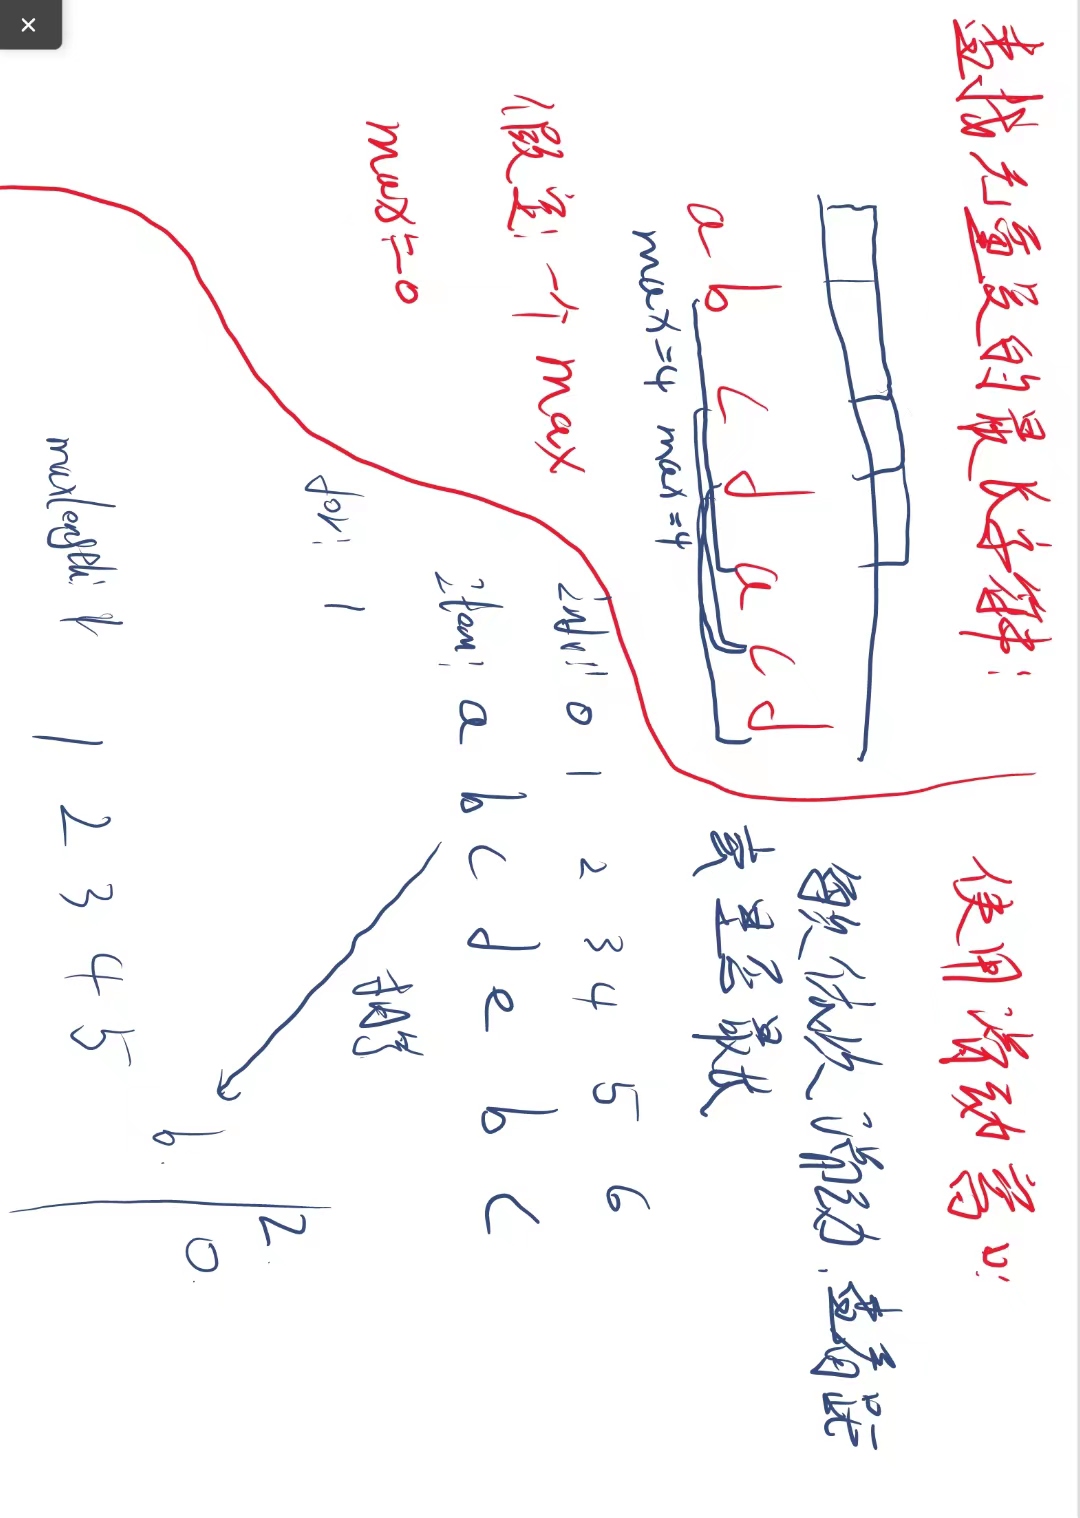 查找无重复的最长字符串:
a b c d a c d
max=4 max=4
假定一个max
max=0
使用滑动窗口:
每次依次滑动,查看距
离是否最长
index: 0 1 2 3 4 5 6
item: a b c d e b c
相等
for: 1
2.
b. 0.
maxlength: 1 2 3 4 5